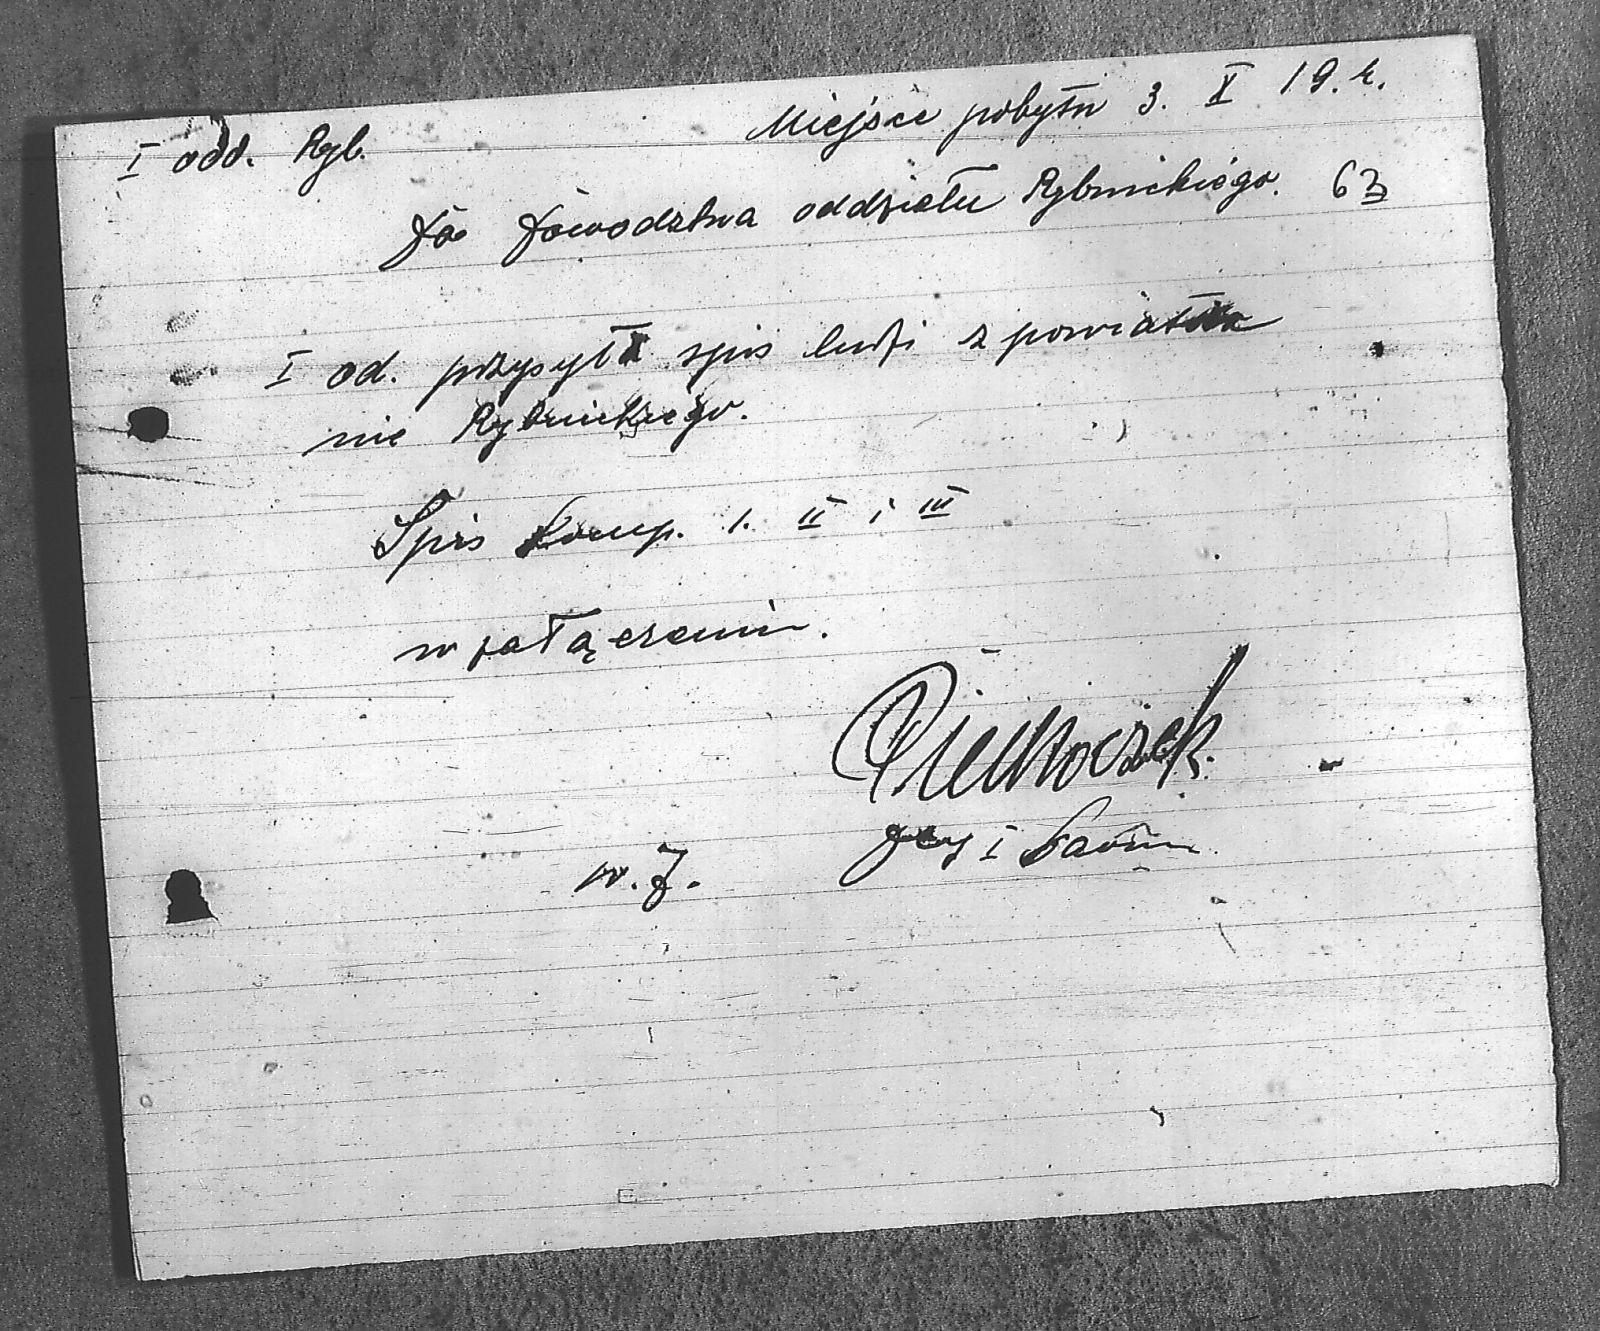 I odd. Ryb.
Miejsce pobytu 3. X 19. r.
Do Dowodztwa oddziału Rybnickiego. 63
I od. przysyła spis ludzi z powiatu
nie Rybnickiego.
Spis komp. I. II i III
w załączeniu.
w. z.
I